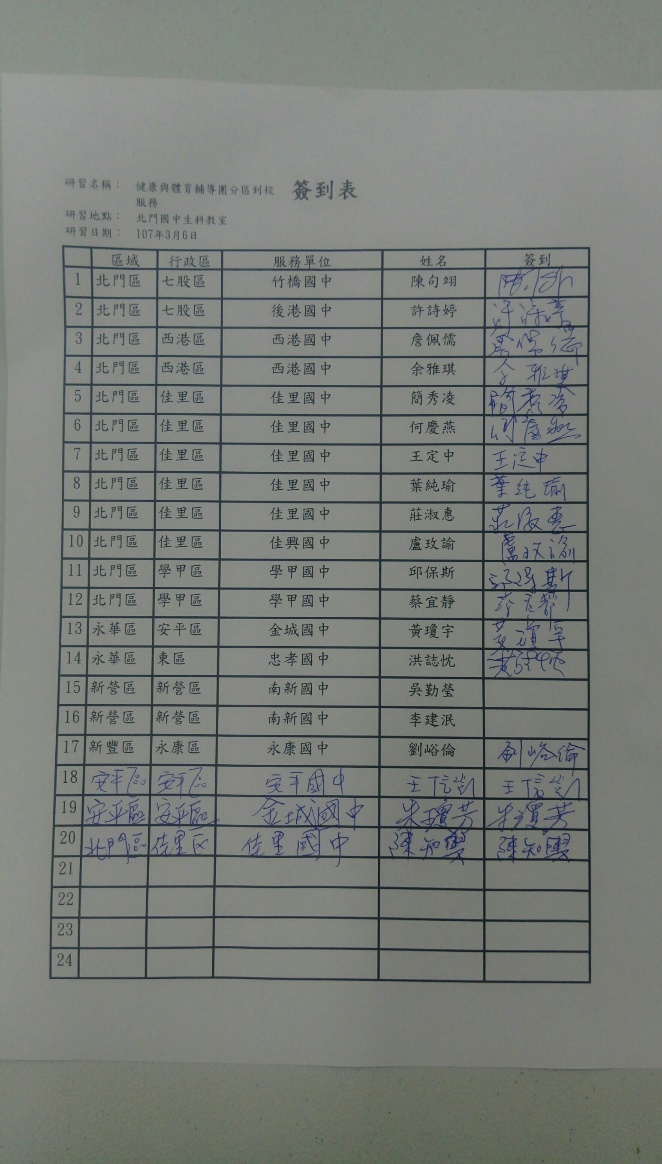 研習名稱： 健康與體育輔導團分區到校 簽到表
服務
研習地點： 北門國中生科教室
研習日期： 107年3月6日
區域 行政區 服務單位 姓名 簽到
1 北門區 七股區 竹橋國中 陳句翊
2 北門區 七股區 後港國中 許詩婷 許詩婷
3 北門區 西港區 西港國中 詹佩儒 詹佩儒
4 北門區 西港區 西港國中 余雅琪 余雅琪
5 北門區 佳里區 佳里國中 簡秀凌 簡秀凌
6 北門區 佳里區 佳里國中 何慶燕 何慶燕
7 北門區 佳里區 佳里國中 王定中 王定中
8 北門區 佳里區 佳里國中 葉純瑜 葉純瑜
9 北門區 佳里區 佳里國中 莊淑惠 莊淑惠
10 北門區 佳里區 佳興國中 盧玫諭 盧玫諭
11 北門區 學甲區 學甲國中 邱保斯 邱保斯
12 北門區 學甲區 學甲國中 蔡宜靜 蔡宜靜
13 永華區 安平區 金城國中 黃瓊宇 黃瓊宇
14 永華區 東區 忠孝國中 洪誌忱
15 新營區 新營區 南新國中 吳勤瑩
16 新營區 新營區 南新國中 李建泯
17 新豐區 永康區 永康國中 劉峪倫 劉峪倫
18 安平區 安平區 安平國中 王信凱 王信凱
19 安平區 安平區 金城國中 朱瓊芳 朱瓊芳
20 北門區 佳里區 佳里國中 陳知興 陳知興
21
22
23
24